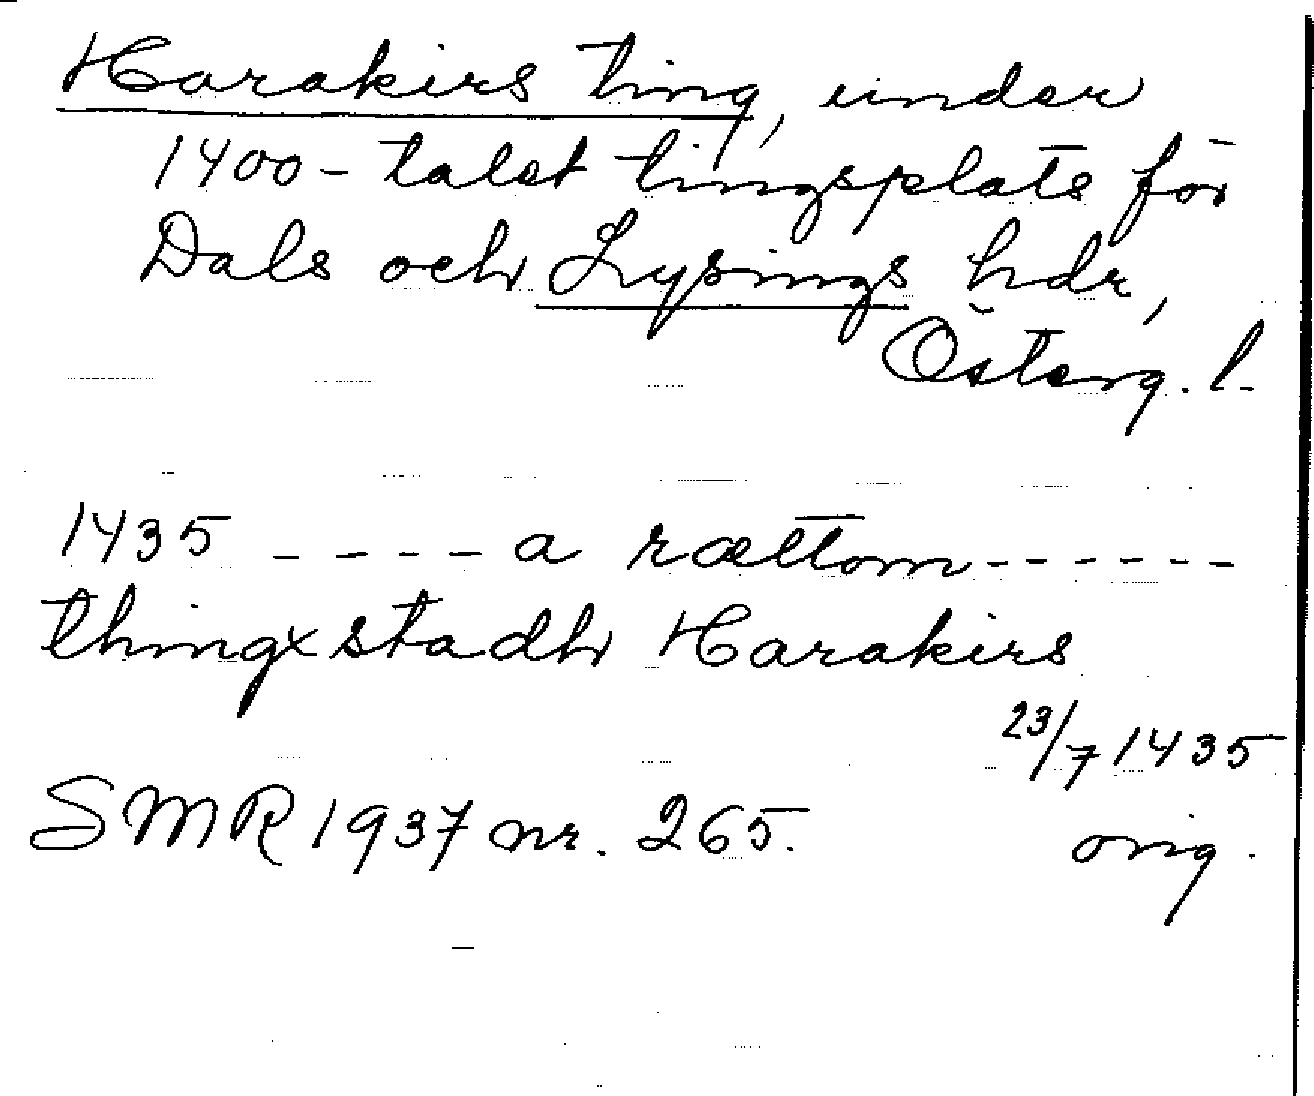 Harakirs ting, under
1400-talet tingsplats för
Dals och Lysings hdr,
Österg. l.
1435 ---- a rættom------
thingxstadh Harakirs
23/7 1435
SMR 1937 nr. 265. orig.